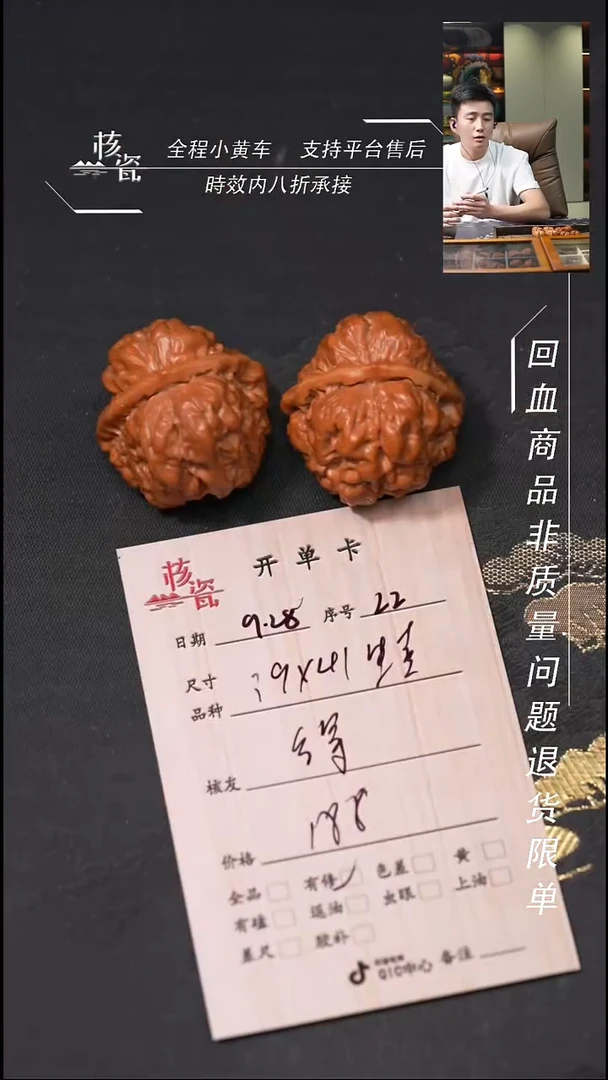 核瓷
全程小黄车 支持平台售后
時效内八折承接
回血商品非质量问题退货限单
核瓷
开单卡
日期 9.28 序号 22
尺寸 39X41
品种
核友
价格 188
全品 有修 色差 黄
有磕 返油 虫眼 上油
差尺 胶补
QIC中心 备注